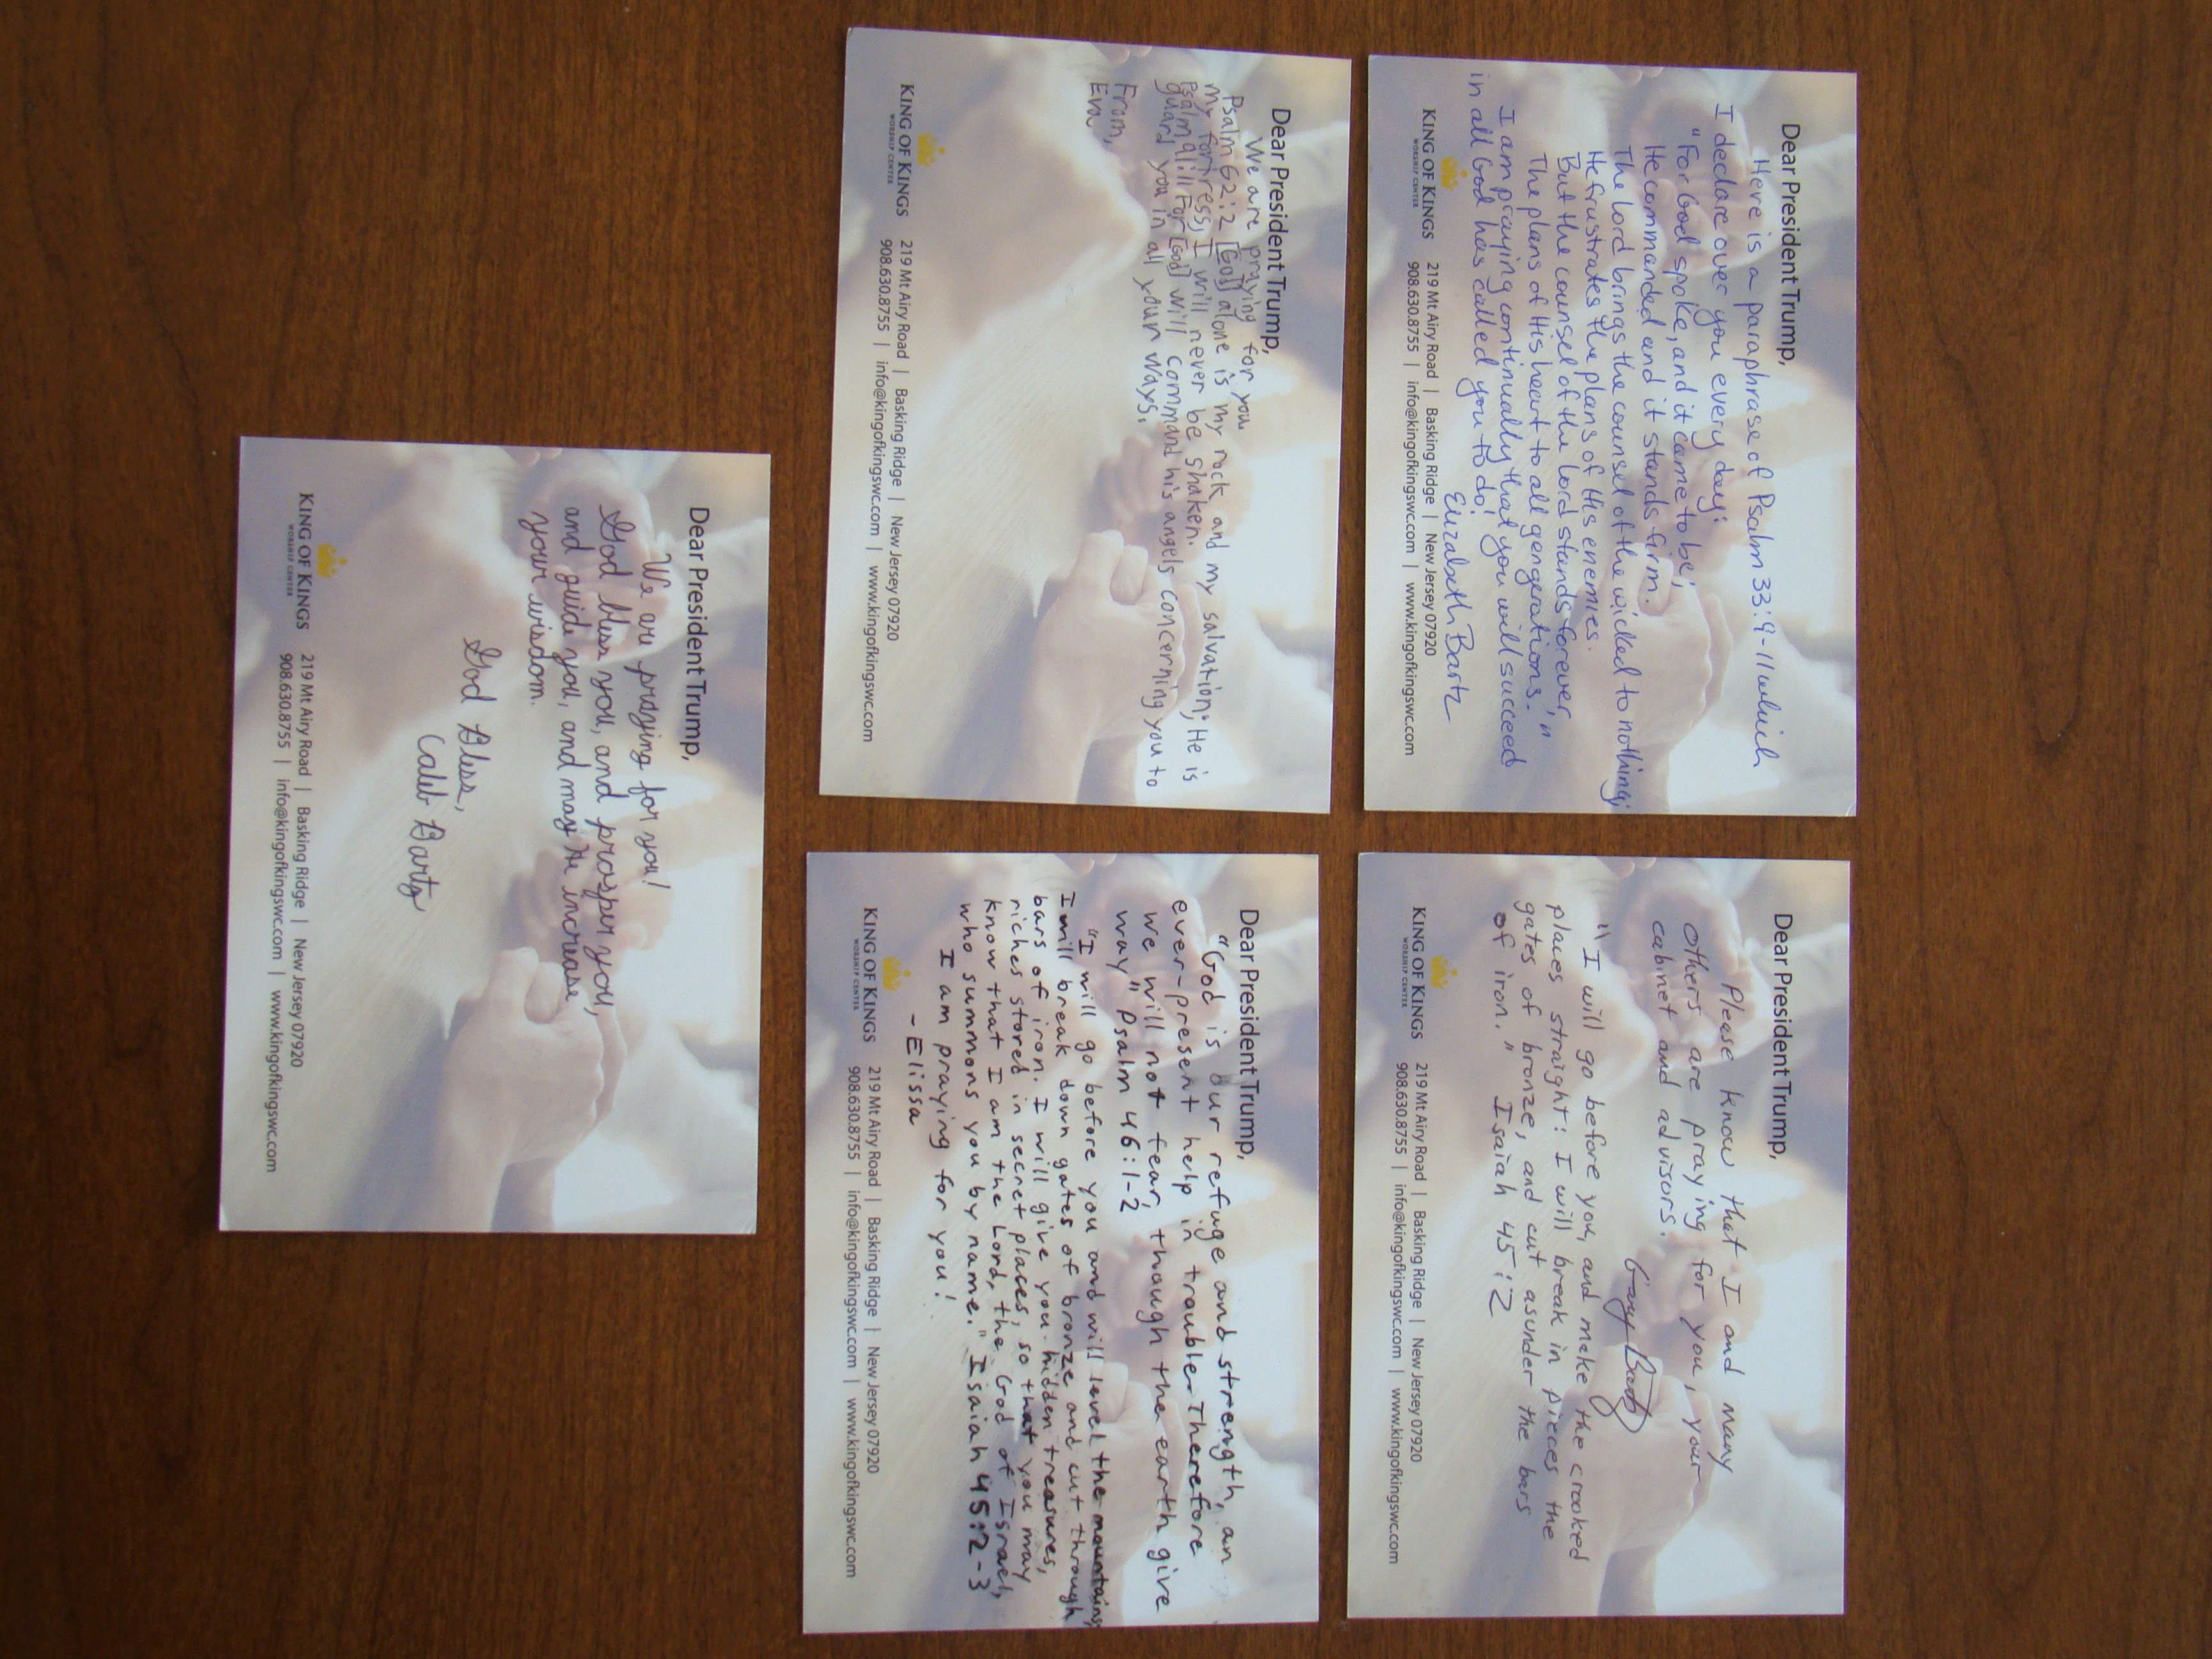 Dear President Trump,
Here is a paraphrase of Psalm 33:9-11 which
I declare over you every day:
"For God spoke, and it came to be;
He commanded and it stands firm.
The Lord brings the counsel of the wicked to nothing;
He frustrates the plans of His enemies.
But the counsel of the Lord stands forever,
The plans of His heart to all gengerations."
I am praying continually that you will succeed
in all God has called you to do!
Elizabeth Bartz
KING OF KINGS
WORSHIP CENTER
219 Mt Airy Road | Basking Ridge | New Jersey 07920
908.630.8755 | info@kingofkingswc.com | www.kingofkingswc.com
Dear President Trump,
Please know that I and many
others are praying for you, your
cabinet and advisors.
Gary Bartz
"I will go before you, and make the crooked
places straight: I will break in pieces the
gates of bronze, and cut asunder the bars
of iron." Isaiah 45:2
KING OF KINGS
WORSHIP CENTER
219 Mt Airy Road | Basking Ridge | New Jersey 07920
908.630.8755 | info@kingofkingswc.com | www.kingofkingswc.com
Dear President Trump,
We are praying for you.
Psalm 62:2 [God] alone is my rock and my salvation; He is
my fortress, I will never be shaken.
Psalm 91:11 For [God] will command his angels concerning you to
guard you in all your ways.
From,
Eva
KING OF KINGS
WORSHIP CENTER
219 Mt Airy Road | Basking Ridge | New Jersey 07920
908.630.8755 | info@kingofkingswc.com | www.kingofkingswc.com
Dear President Trump,
"God is our refuge and strength, an
ever-present help in trouble. Therefore
we will not fear, though the earth give
way" Psalm 46:1-2
"I will go before you and will level the mountains;
I will break down gates of bronze and cut through
bars of iron. I will give you hidden treasures,
riches stored in secret places, so that you may
know that I am the Lord, the God of Israel,
who summons you by name." Isaiah 45:2-3
I am praying for you!
- Elissa
KING OF KINGS
WORSHIP CENTER
219 Mt Airy Road | Basking Ridge | New Jersey 07920
908.630.8755 | info@kingofkingswc.com | www.kingofkingswc.com
Dear President Trump,
We are praying for you!
God bless you, and prosper you,
and guide you, and may He increase
your wisdom.
God Bless,
Caleb Bartz
KING OF KINGS
WORSHIP CENTER
219 Mt Airy Road | Basking Ridge | New Jersey 07920
908.630.8755 | info@kingofkingswc.com | www.kingofkingswc.com